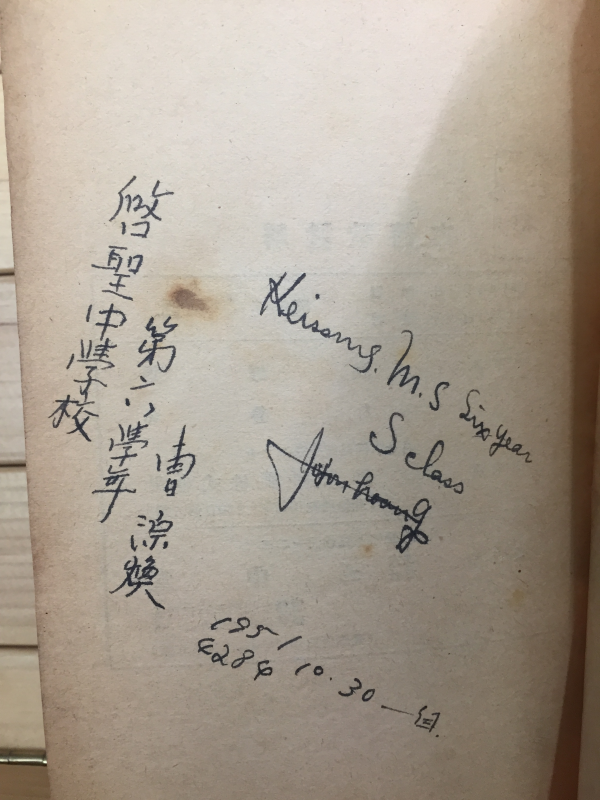 啓聖中學校
第六學年
曺
煥
Keisung. M.S Six year
S class
1951
4284 10. 30